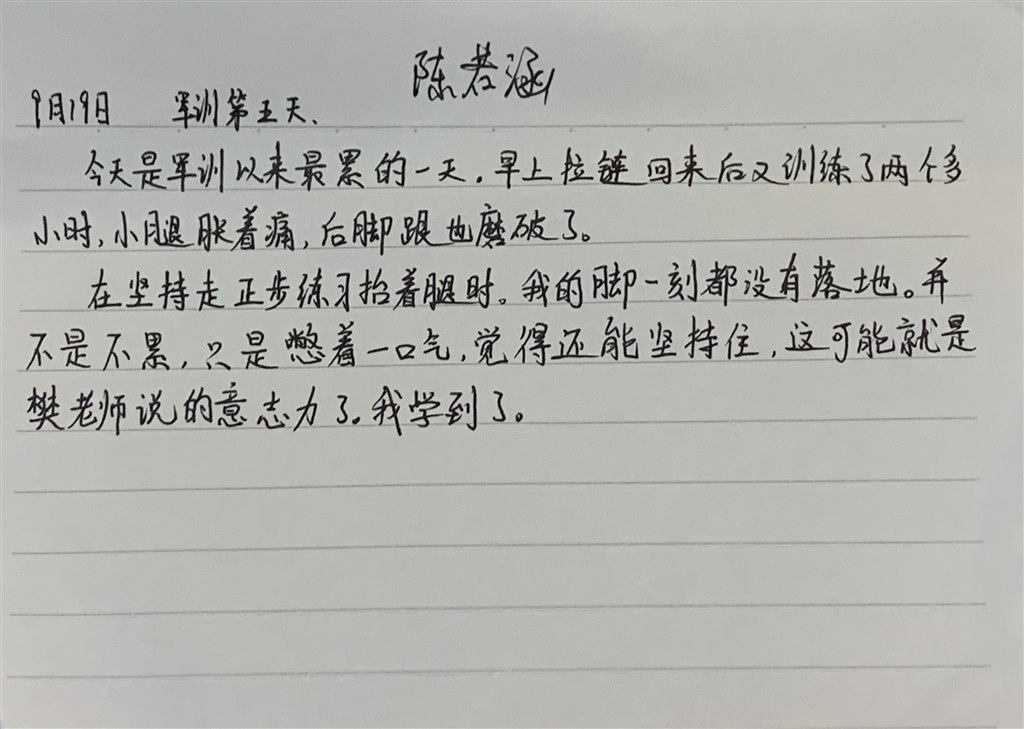 陈若涵
9月19日 军训第五天、
今天是军训以来最累的一天。早上拉链回来后又训练了两个多
小时,小腿胀着痛,后脚跟也磨破了。
在坚持走正步练习抬着腿时。我的脚一刻都没有落地。并
不是不累,只是憋着一口气,觉得还能坚持住,这可能就是
樊老师说的意志力了。我学到了。